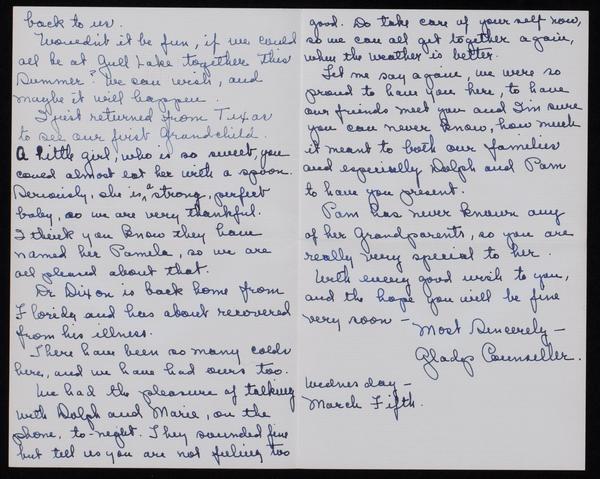 back to us.
Wouldn't it be fun, if we could
all be at Gull Lake together this
Summer? We can wish, and
maybe it will happen.
I just returned from Texas
to see our first Grandchild.
A little girl, who is so sweet, you
could almost eat her with a spoon.
Seriously, she is a strong, perfect
baby, so we are very thankful.
I think you know they have
named her Pamela, so we are
all pleased about that.
Dr Dixon is back home from
Florida and has about recovered
from his illness.
There have been so many colds
here, and we have had ours too.
We had the pleasure of talking
with Dolph and Marie, on the
phone, to-night. They sounded fine
but tell us you are not feeling too
good. Do take care of your self now,
so we can all get together again,
when the weather is better.
Let me say again, we were so
proud to have you here, to have
our friends meet you and I'm sure
you can never know, how much
it meant to both our families
and especially Dolph and Pam
to have you present.
Pam has never known any
of her Grandparents, so you are
really very special to her.
With every good wish to you,
and the hope you will be fine
very soon -
Most Sincerely -
Gladys Counseller.
Wednesday -
March Fifth.